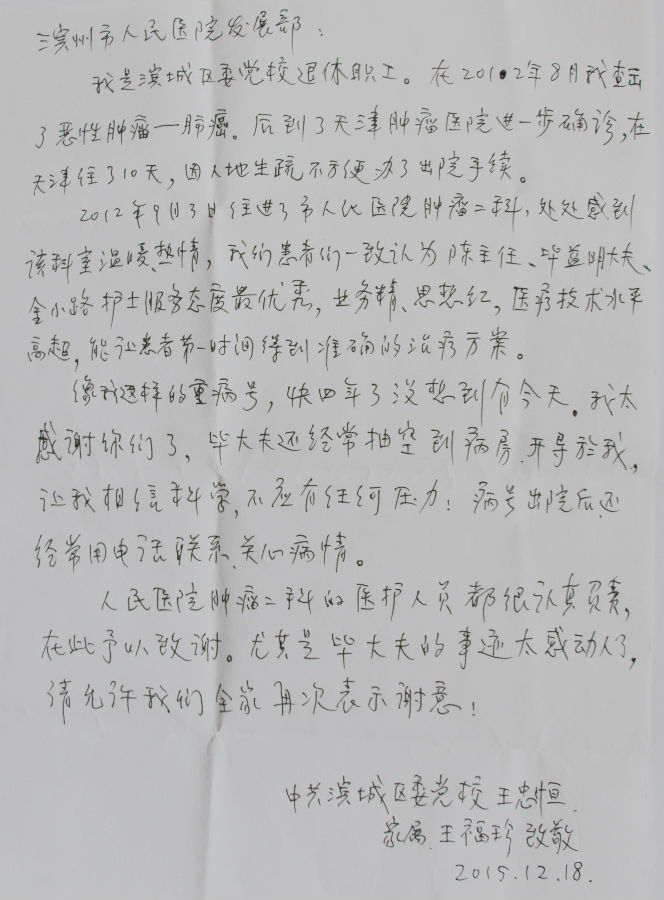 滨州市人民医院发展部：
我是滨城区委党校退休职工。在2012年8月我查出
了恶性肿瘤—肺癌。后到了天津肿瘤医院进一步确诊，在
天津住了10天，因人地生疏不方便办了出院手续。
2012年9月3日住进了市人民医院肿瘤二科，处处感到
该科室温暖热情，我们患者们一致认为陈主任、毕益明大夫、
金小路护士服务态度最优秀，业务精、思想红，医疗技术水平
高超，能让患者第一时间得到准确的治疗方案。
像我这样的重病号，快四年了没想到有今天。我太
感谢你们了，毕大夫还经常抽空到病房开导於我，
让我相信科学，不应有任何压力！病号出院后还
经常用电话联系、关心病情。
人民医院肿瘤二科的医护人员都很认真负责，
在此予以致谢。尤其是毕大夫的事迹太感动人了，
请允许我们全家再次表示谢意！
中共滨城区委党校 王忠恒
家属 王福珍 致敬
2015.12.18.